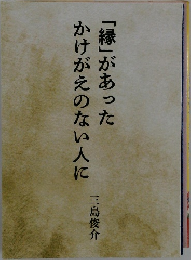 「縁」があった
かけがえのない人に
三島俊介